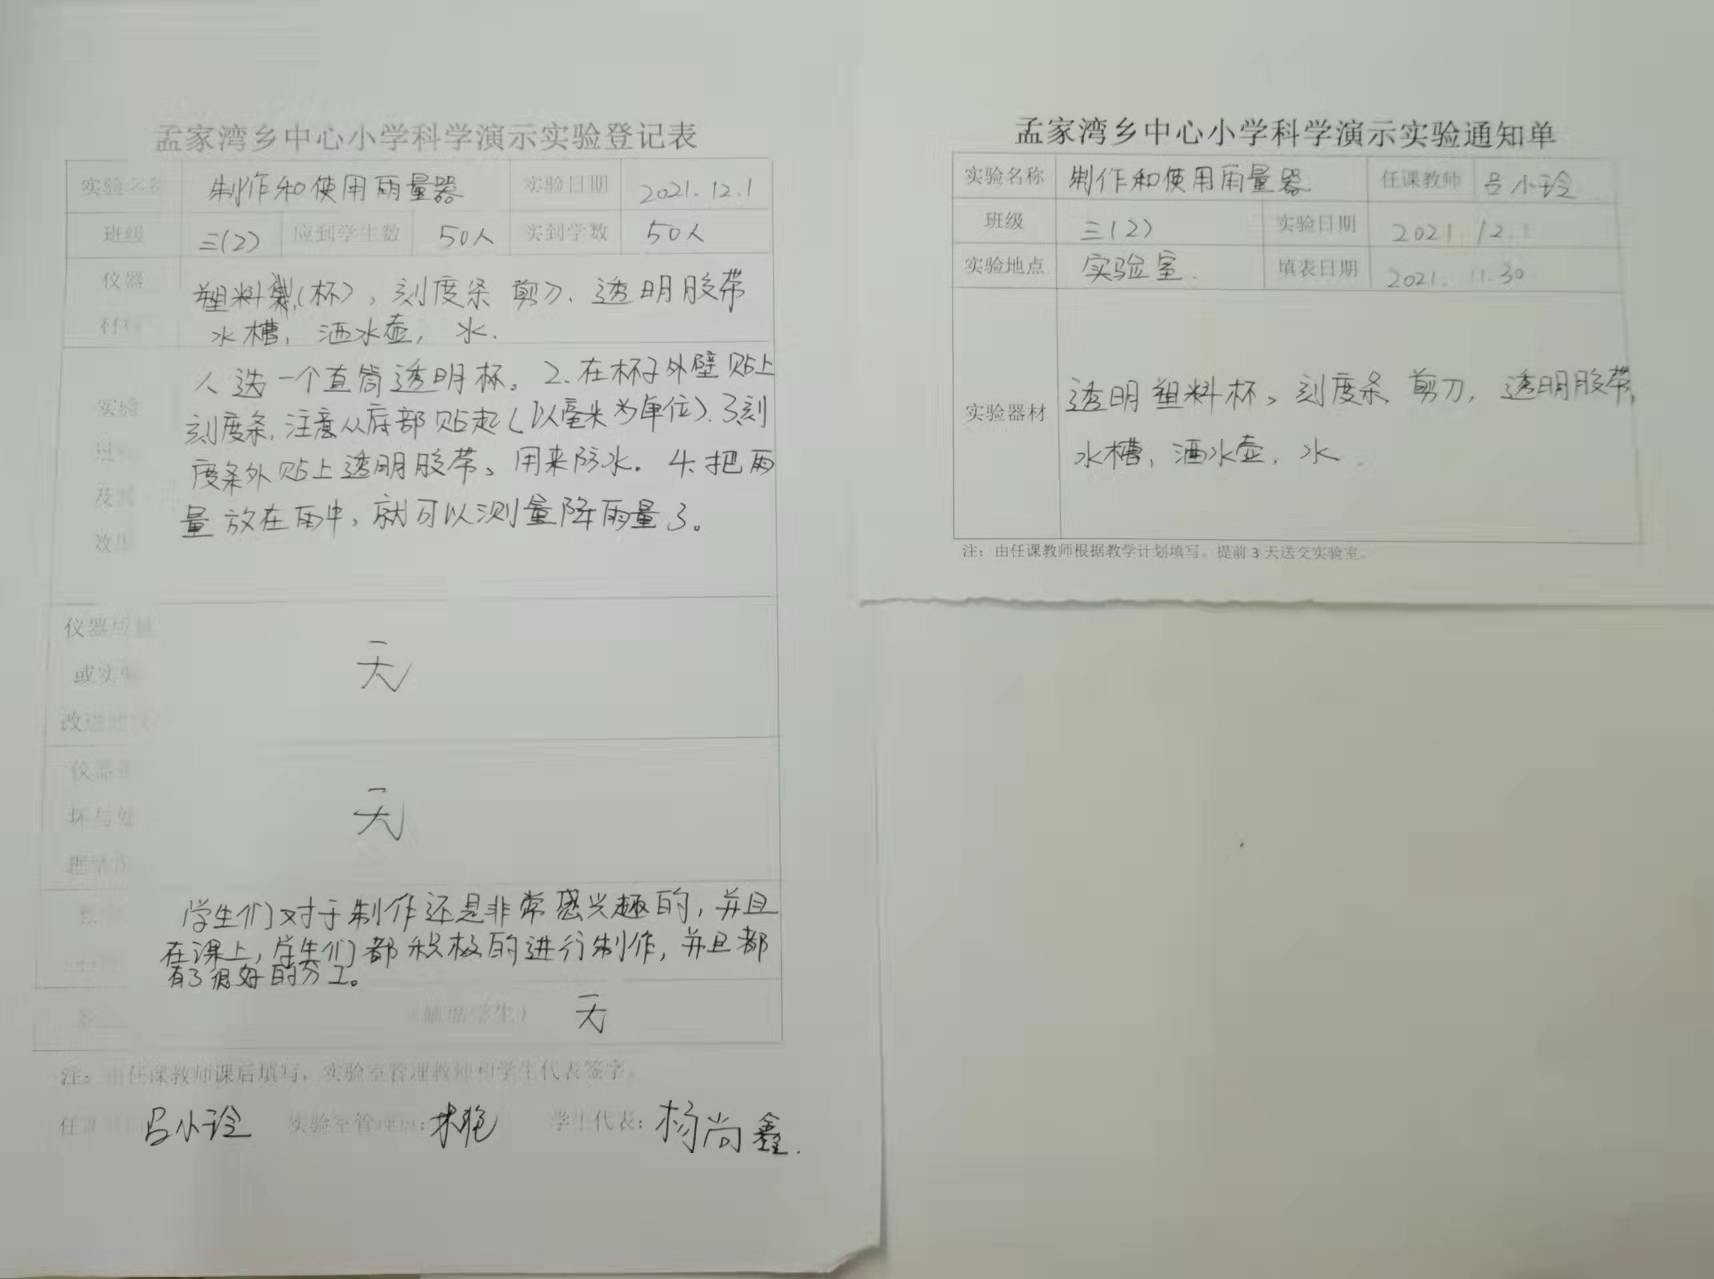 孟家湾乡中心小学科学演示实验登记表
实验名称 制作和使用雨量器 实验日期 2021.12.1
班级 三(2) 应到学生数 50人 实到学数 50人
仪器 塑料(杯)，刻度条 剪刀、透明胶带
材料 水槽，洒水壶，水.
1、选一个直筒透明杯。2.在杯子外壁贴上
实验 刻度条，注意从底部贴起(以毫米为单位).3刻
度条外贴上透明胶带。用来防水. 4.把雨
及其 量放在雨中，就可以测量降雨量了。
效果
仪器质量
或实验 无
改进建议
仪器损
坏与处 无
理情况
学生们对于制作还是非常感兴趣的，并且
在课上，学生们都积极的进行制作，并且都
有了很好的分工。
(缺席学生) 无
注：由任课教师课后填写，实验室管理教师和学生代表签字。
任课教师 吕小玲 实验室管理员: 学生代表: 杨尚鑫.
孟家湾乡中心小学科学演示实验通知单
实验名称 制作和使用雨量器 任课教师 吕小玲
班级 三(2) 实验日期 2021.12.1
实验地点 实验室. 填表日期 2021.11.30
实验器材 透明塑料杯、刻度条 剪刀，透明胶带，
水槽，洒水壶，水.
注：由任课教师根据教学计划填写。提前3天送交实验室。